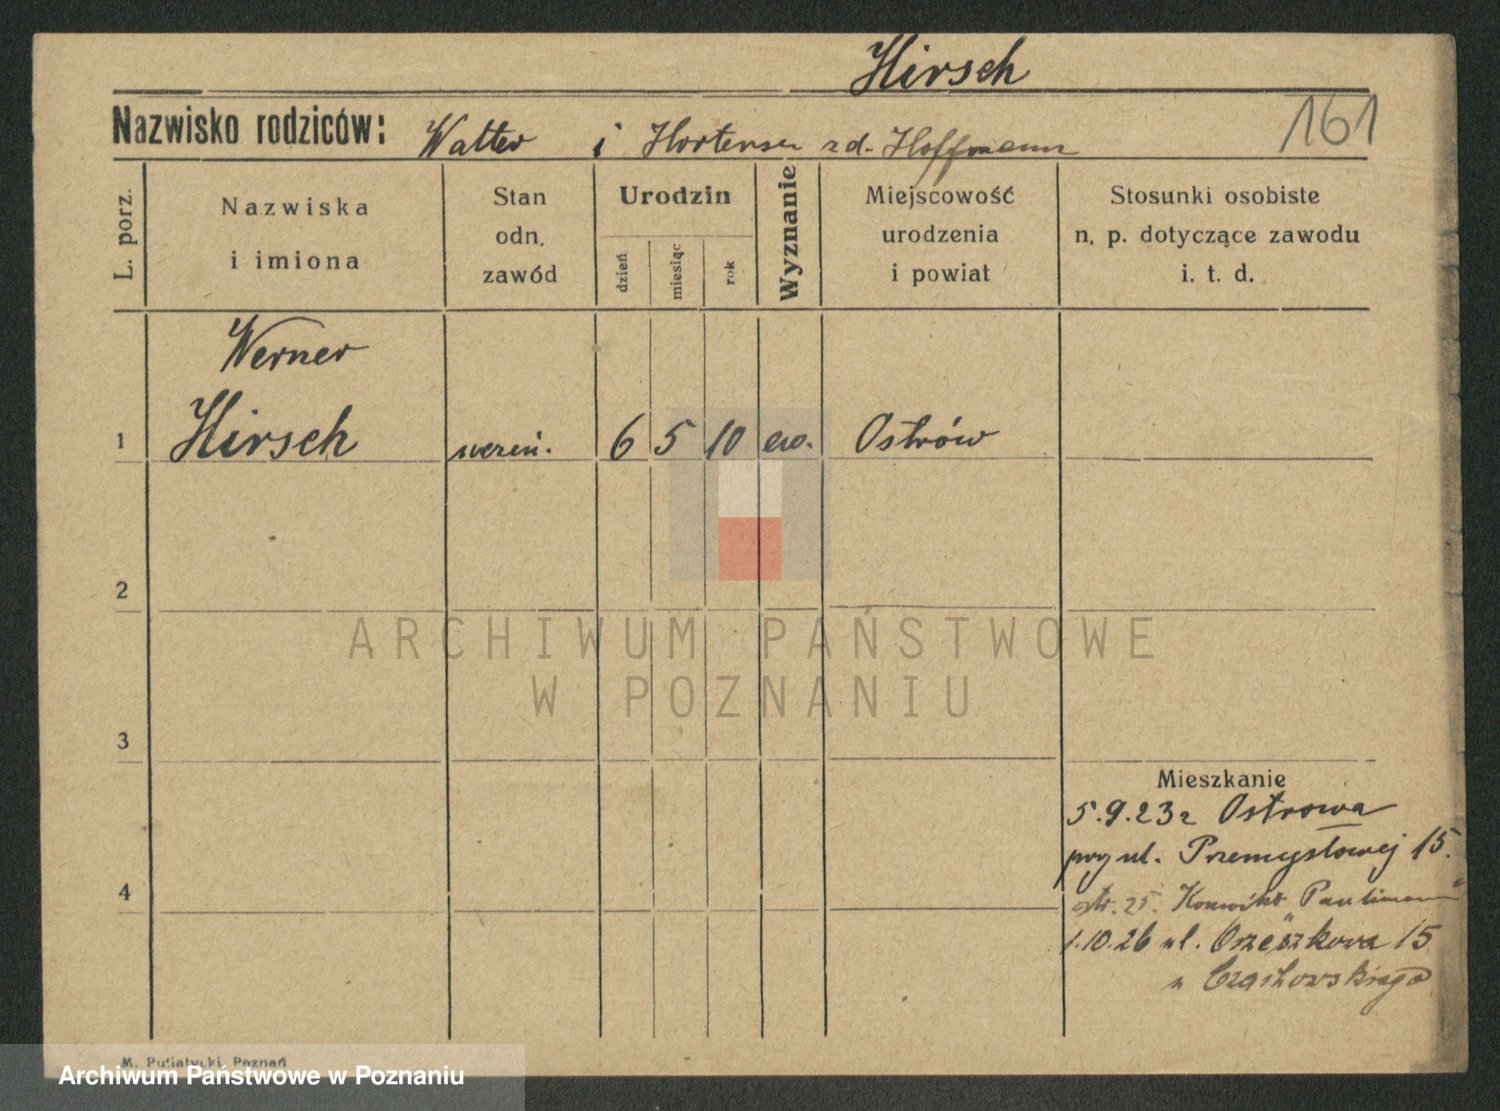 Hirsch
161
Nazwisko rodziców: Walter i Hortensa zd. Hoffmann
L. porz.
Nazwiska
i imiona
Stan
odn.
zawód
Urodzin
dzień
miesiąc
rok
Wyznanie
Miejscowość
urodzenia
i powiat
Stosunki osobiste
n. p. dotyczące zawodu
i. t. d.
Werner
1 Hirsch uczeń. 6 5 10 ew. Ostrów
2
ARCHIWUM PAŃSTWOWE
W POZNANIU
3
Mieszkanie
5.9.23 z Ostrowa
przy ul. Przemysłowej 15.
4
25. Konwikt
1.10.26 ul. Orzeszkowa 15
M. Putiatycki, Poznań
Archiwum Państwowe w Poznaniu